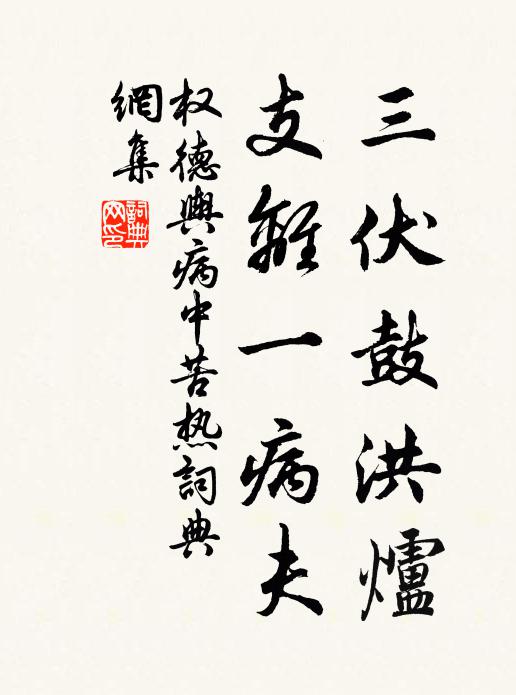 三伏鼓洪爐
支離一病夫
权德輿病中苦热詞典
網集
詞典网印